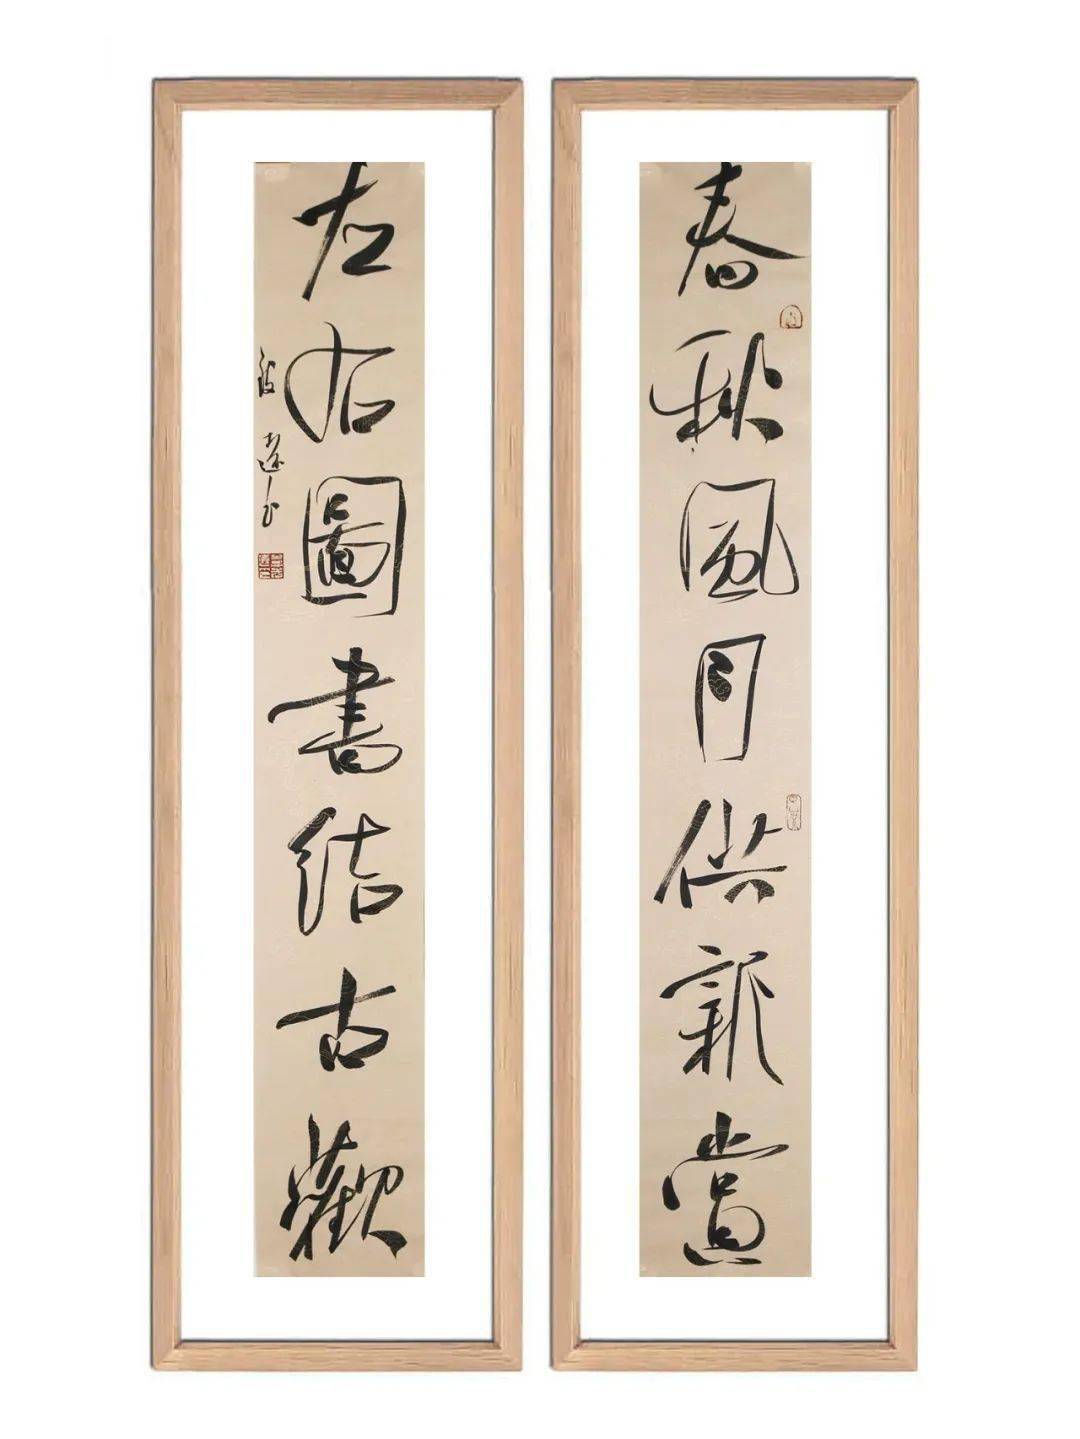 春秋風月供新賞
左右圖書結古歡